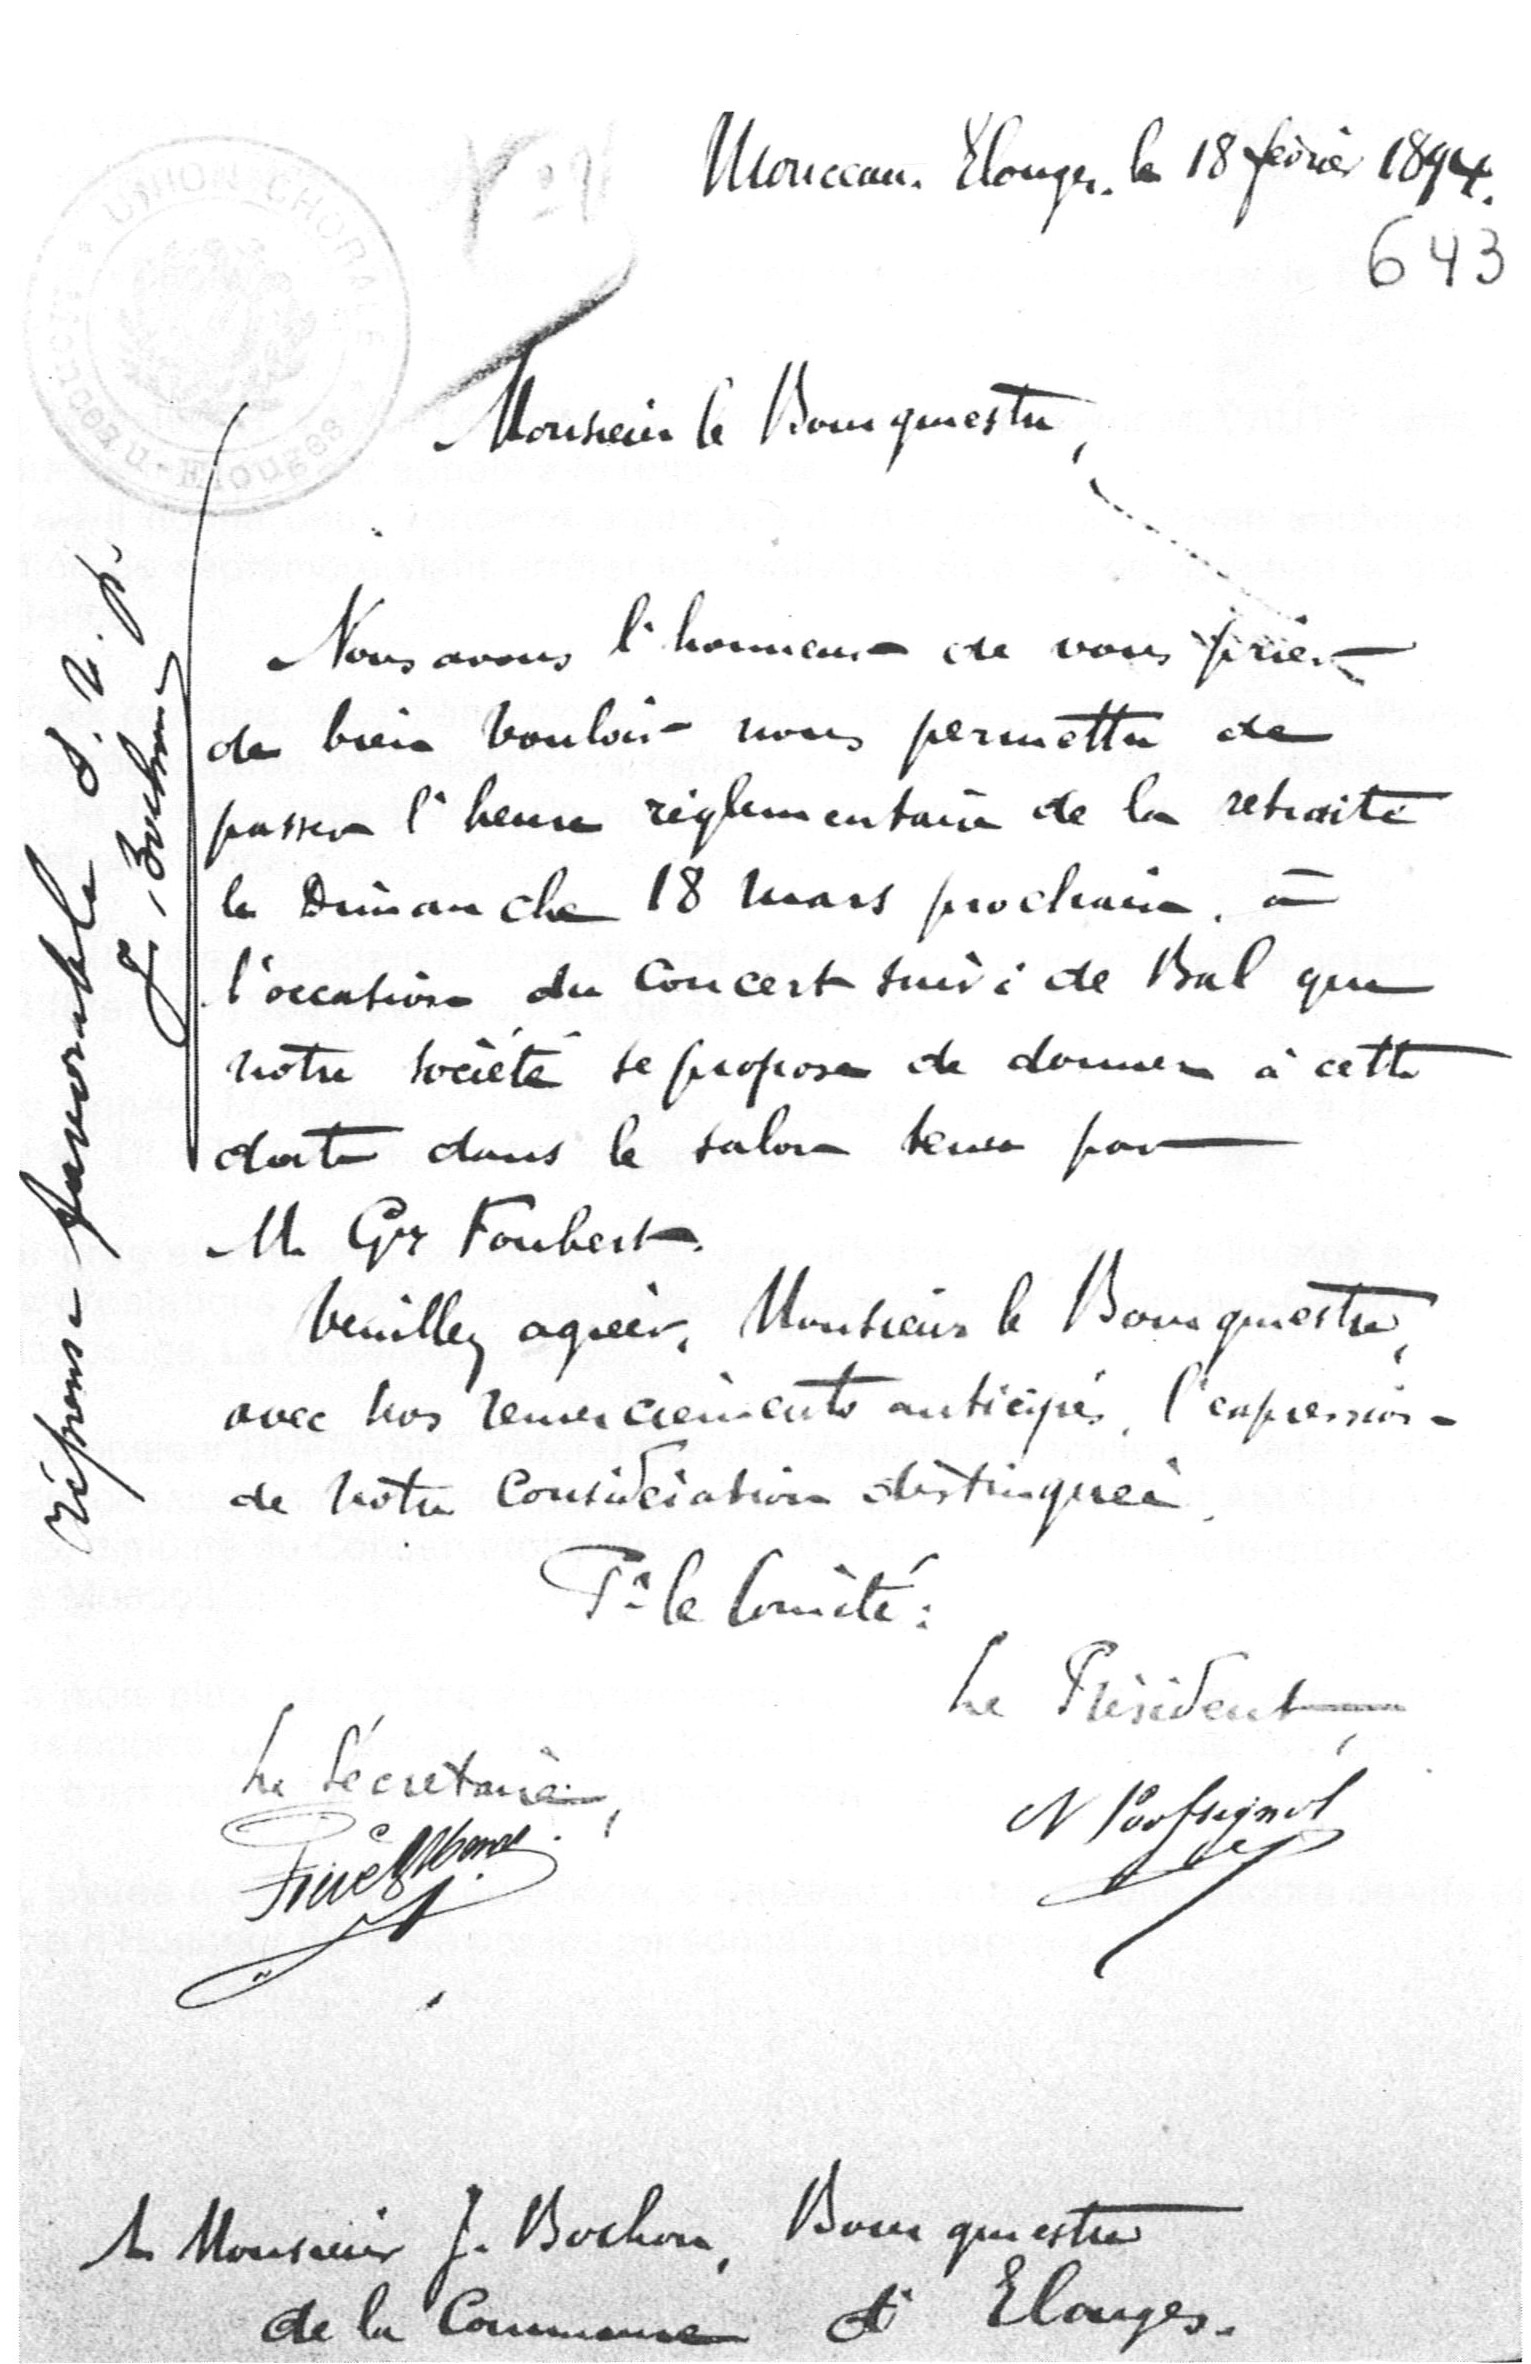 Monceau-Elouges, le 18 février 1894.
643
UNION CHORALE
Monceau-Elouges
Monsieur le Bourgmestre,
Nous avons l'honneur de vous prier
de bien vouloir nous permettre de
passer l'heure réglementaire de la retraite
le Dimanche 18 mars prochain, à
l'occasion du concert suivi de Bal que
notre société se propose de donner à cette
date dans le salon tenu par
M. Gr Foubert.
Veuillez agréer, Monsieur le Bourgmestre,
avec nos remerciements anticipés, l'expression
de notre considération distinguée.
Pr le Comité:
Le Président,
Le Sécretaire,
À Monsieur J. Bochon, Bourgmestre
de la Commune d'Elouges.
réponse favorable S.V.p.
J. Bochon